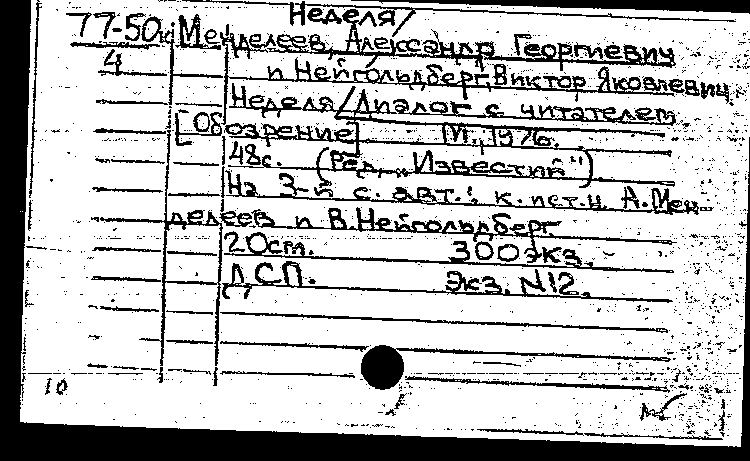 Неделя/
77-50к Менделеев, Александр Георгиевич
4 и Нейгольдберг, Виктор Яковлевич
Неделя/Диалог с читателем
[Обозрение] М., 1976.
48с. (Ред. „Известий").
На 3-й с. авт.: к.ист.н. А.Мен-
делеев и В.Нейгольдберг
20см. 300экз.
ДСП. Экз. №12.
10